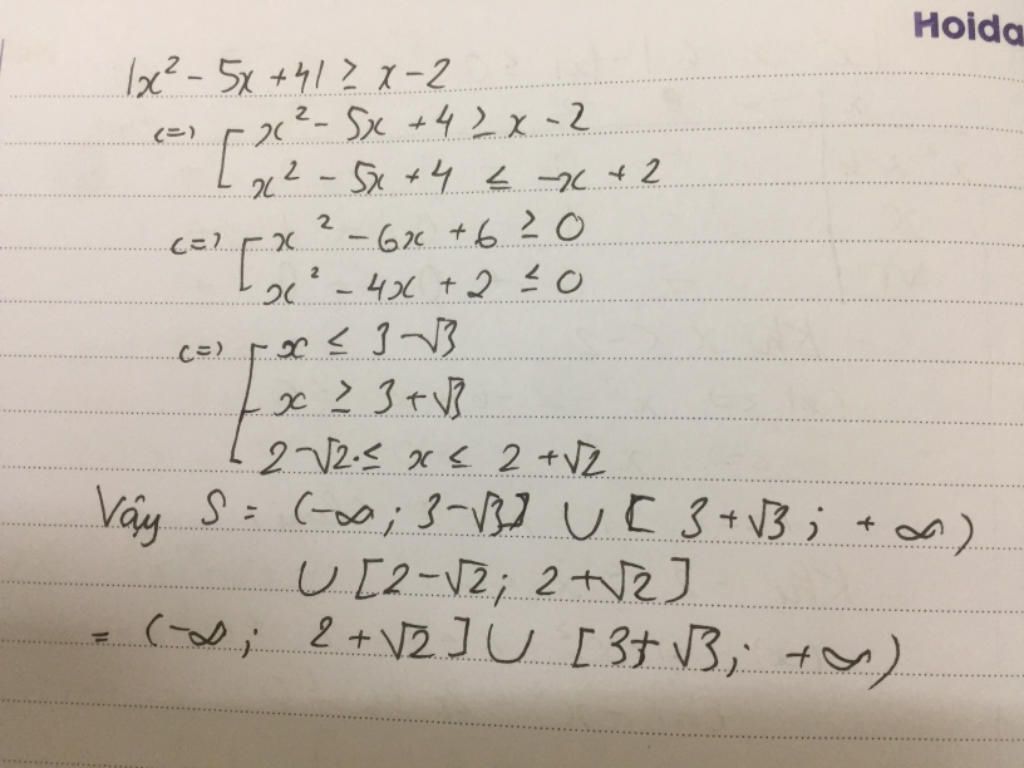 Hoida
|x² - 5x + 4| ≥ x - 2
<=> [ x² - 5x + 4 ≥ x - 2
x² - 5x + 4 ≤ -x + 2
<=> [ x² - 6x + 6 ≥ 0
x² - 4x + 2 ≤ 0
<=> [ x ≤ 3 - √3
x ≥ 3 + √3
2 - √2 ≤ x ≤ 2 + √2
Vậy S = (-∞; 3 - √3] ∪ [3 + √3; +∞)
∪ [2 - √2; 2 + √2]
= (-∞; 2 + √2] ∪ [3 + √3; +∞)